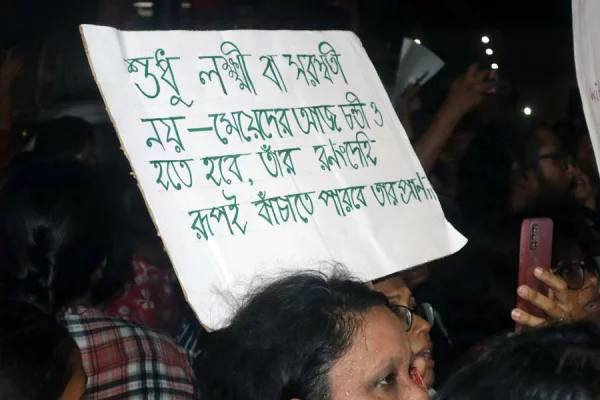 শুধু লক্ষ্মী বা সরস্বতী
নয় – মেয়েদের আজ চন্ডী ও
হতে হবে, তাঁর রনংদেহি
রূপই বাঁচাতে পারবে তার প্রান..